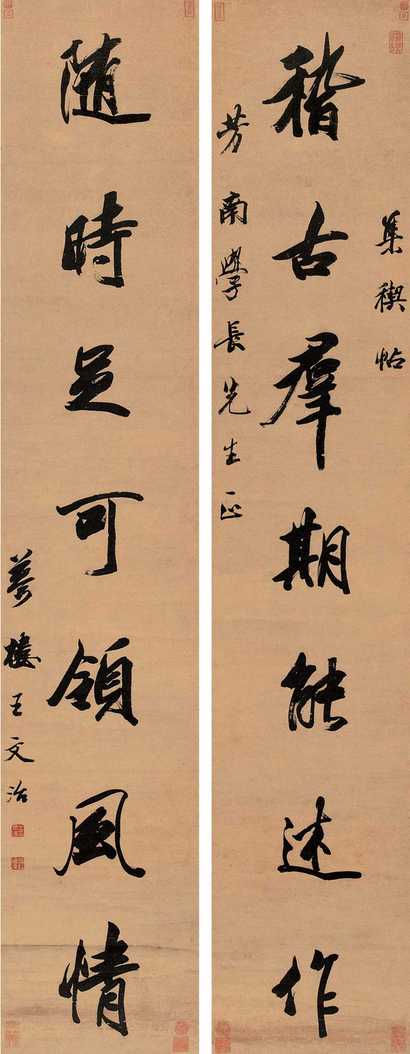 集禊帖
稽古羣期能述作
芳南學長先生正
隨時足可領風情
夢樓王文治